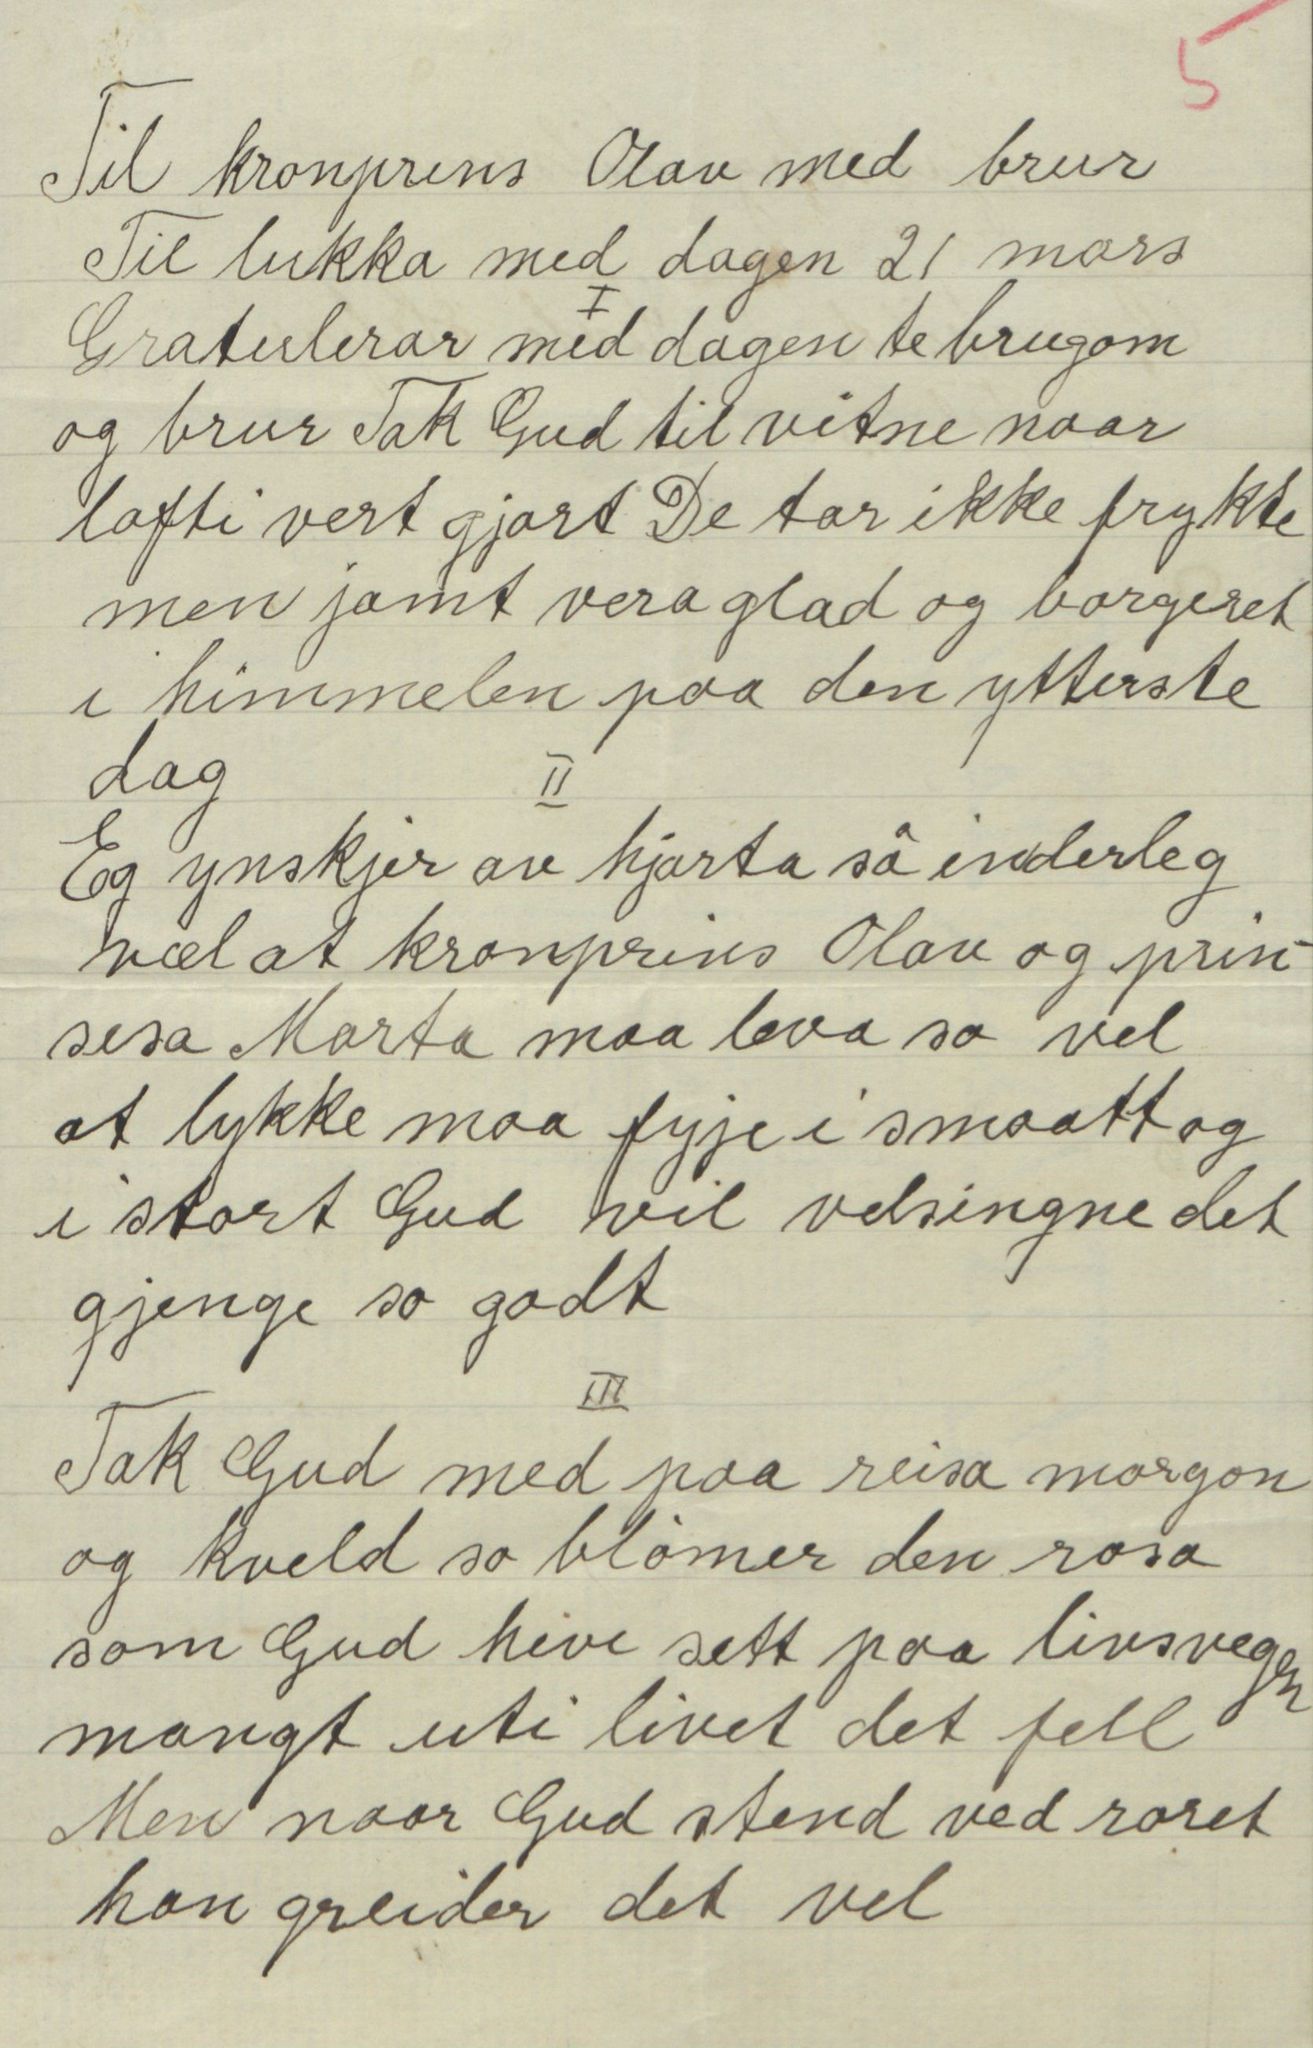 5
Til kronprins Olav med brur
Til lukka med dagen 21 mars
I
Gratulerar med dagen te brugom
og brur Tak Gud til vitne naar
lofti vert gjort De tar ikke frykte
men jamt vera glad og borgeret
i himmelen paa den ytterste
dag
II
Eg ynskjer av hjarta så inderleg
væl at kronprins Olav og prin-
sesa Marta maa leva so vel
at lykke maa fyje i smaatt og
i stort Gud vil velsingne det
gjenge so godt
III
Tak Gud med paa reisa morgon
og kveld so blómer den rosa
som Gud heve sett paa livsvegen
mangt uti livet det fell
Men naar Gud stend ved roret
han greider det vel